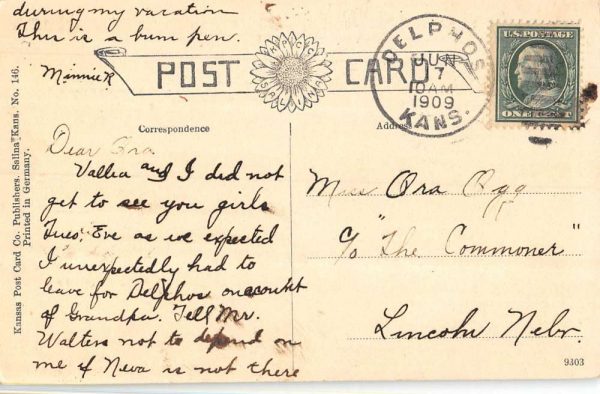 during my vacation
This is a bum pen.
Minnie R.
POST CARD
DELPHOS
JUN
7
10 AM
1909
KANS.
U.S. POSTAGE
ONE CENT
Correspondence
Address
Dear Ora
Vallea and I did not
get to see you girls
Tues. Eve as we expected
I unexpectedly had to
leave for Delphos on acount
of Grandpa. Tell Mr.
Walters not to depend on
me if Neva is not there
Miss Ora Ogg
c/o "The Commoner"
Lincoln Nebr.
Kansas Post Card Co. Publishers. Salina, Kans. No. 146.
Printed in Germany.
9303